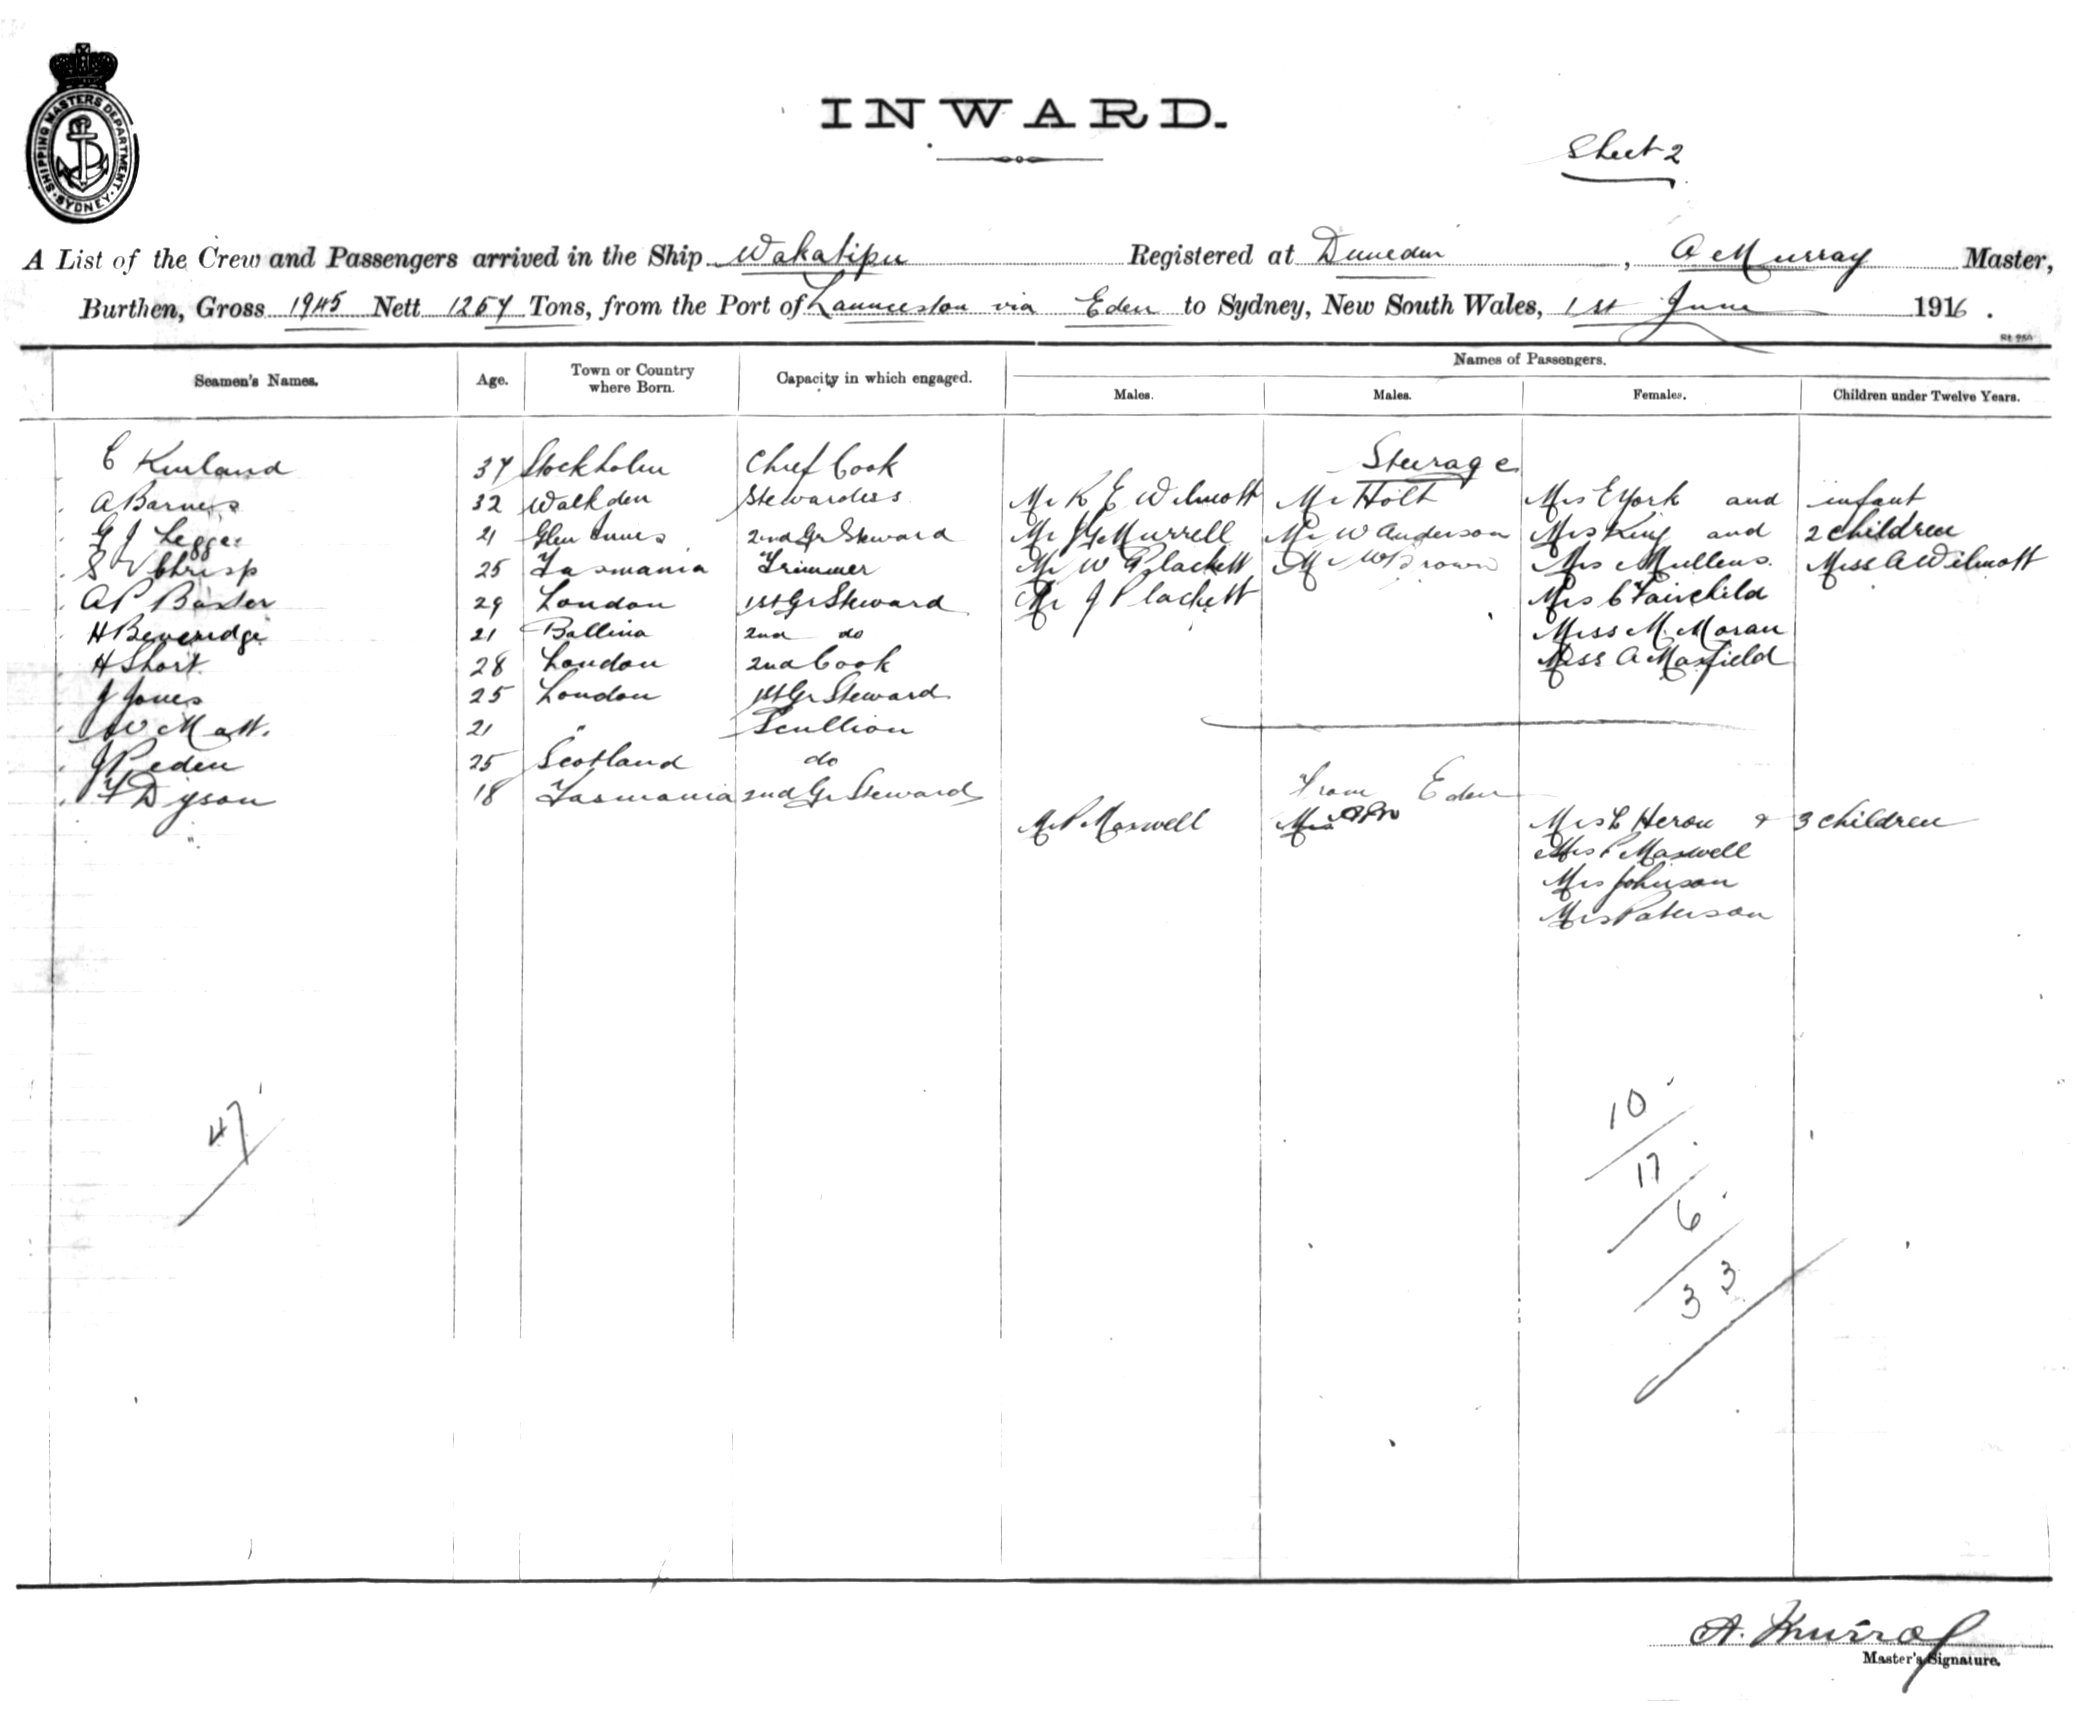 SHIPPING MASTERS DEPARTMENT
SYDNEY
INWARD.
Sheet 2
A List of the Crew and Passengers arrived in the Ship Wakatipu Registered at Dunedin, A Murray Master,
Burthen, Gross 1945 Nett 1257 Tons, from the Port of Launceston via Eden to Sydney, New South Wales, 1st June 1916.
Names of Passengers.
Seamen's Names. Age. Town or Country where Born. Capacity in which engaged. Males. Males. Females. Children under Twelve Years.
Steerage
C 37 Stockholm Chief Cook
A Barnes 32 Walkden Stewardess Mr K E Wilmott Mr Holt Mrs E York and infant
G J Legge 21 Glen Innes 2nd Gr Steward Mr Murrell Mr W Anderson Mrs King and 2 children
S V Chrisp 25 Tasmania Trimmer Mr W Plackett Mr W Brown Mrs Mullens. Miss A Wilmott
A P Baxter 29 London 1st Gr Steward Mr J Plackett Mrs C Fairchild
H Beveridge 21 Ballina 2nd do Miss M. Moran
H Short 28 London 2nd Cook Miss A Maxfield
J Jones 25 London 1st Gr Steward
W Matt. 21 " Scullion
J Peden 25 Scotland do
F Dyson 18 Tasmania 2nd Gr Steward
From Eden
Mr P Maxwell Mrs Mrs C Heron & 3 children
Mrs P Maxwell
Mrs Johnson
Mrs Paterson
47
10
17
6
33
A. Murray
Master's Signature.